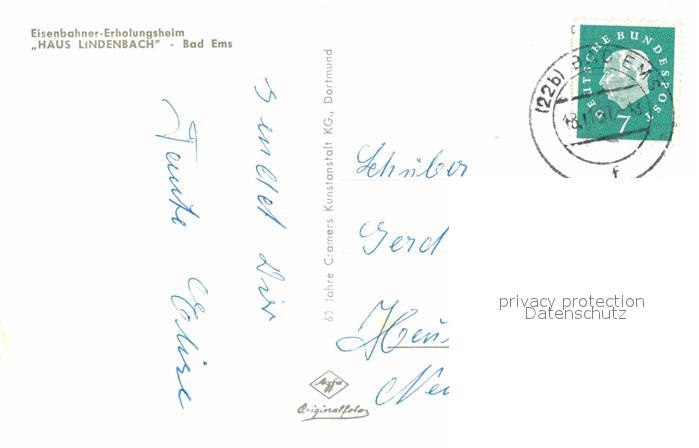 Eisenbahner-Erholungsheim
„HAUS LINDENBACH" - Bad Ems
sendet Dir
Tante Elise
60 Jahre Cramers Kunstanstalt KG., Dortmund
DEUTSCHE BUNDESPOST
7
(22b) BAD EMS
f
Schüber
Gerd
privacy protection
Datenschutz
Agfa
Originalfoto